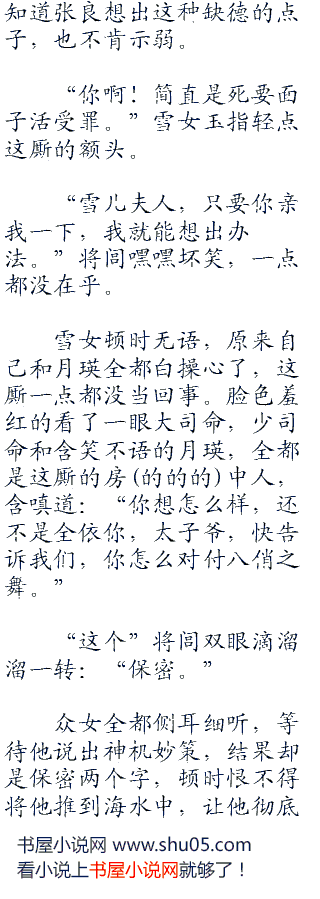 知道张良想出这种缺德的点
子，也不肯示弱。
“你啊！简直是死要面
子活受罪。”雪女玉指轻点
这厮的额头。
“雪儿夫人，只要你亲
我一下，我就能想出办
法。”将闾嘿嘿坏笑，一点
都没在乎。
雪女顿时无语，原来自
己和月瑛全都白操心了，这
厮一点都没当回事。脸色羞
红的看了一眼大司命，少司
命和含笑不语的月瑛，全都
是这厮的房(的的的)中人，
含嗔道：“你想怎么样，还
不是全依你，太子爷，快告
诉我们，你怎么对付八佾之
舞。”
“这个”将闾双眼滴溜
溜一转：“保密。”
众女全都侧耳细听，等
待他说出神机妙策，结果却
是保密两个字，顿时恨不得
将他推到海水中，让他彻底
书屋小说网 www.shu05.com
看小说上书屋小说网就够了！